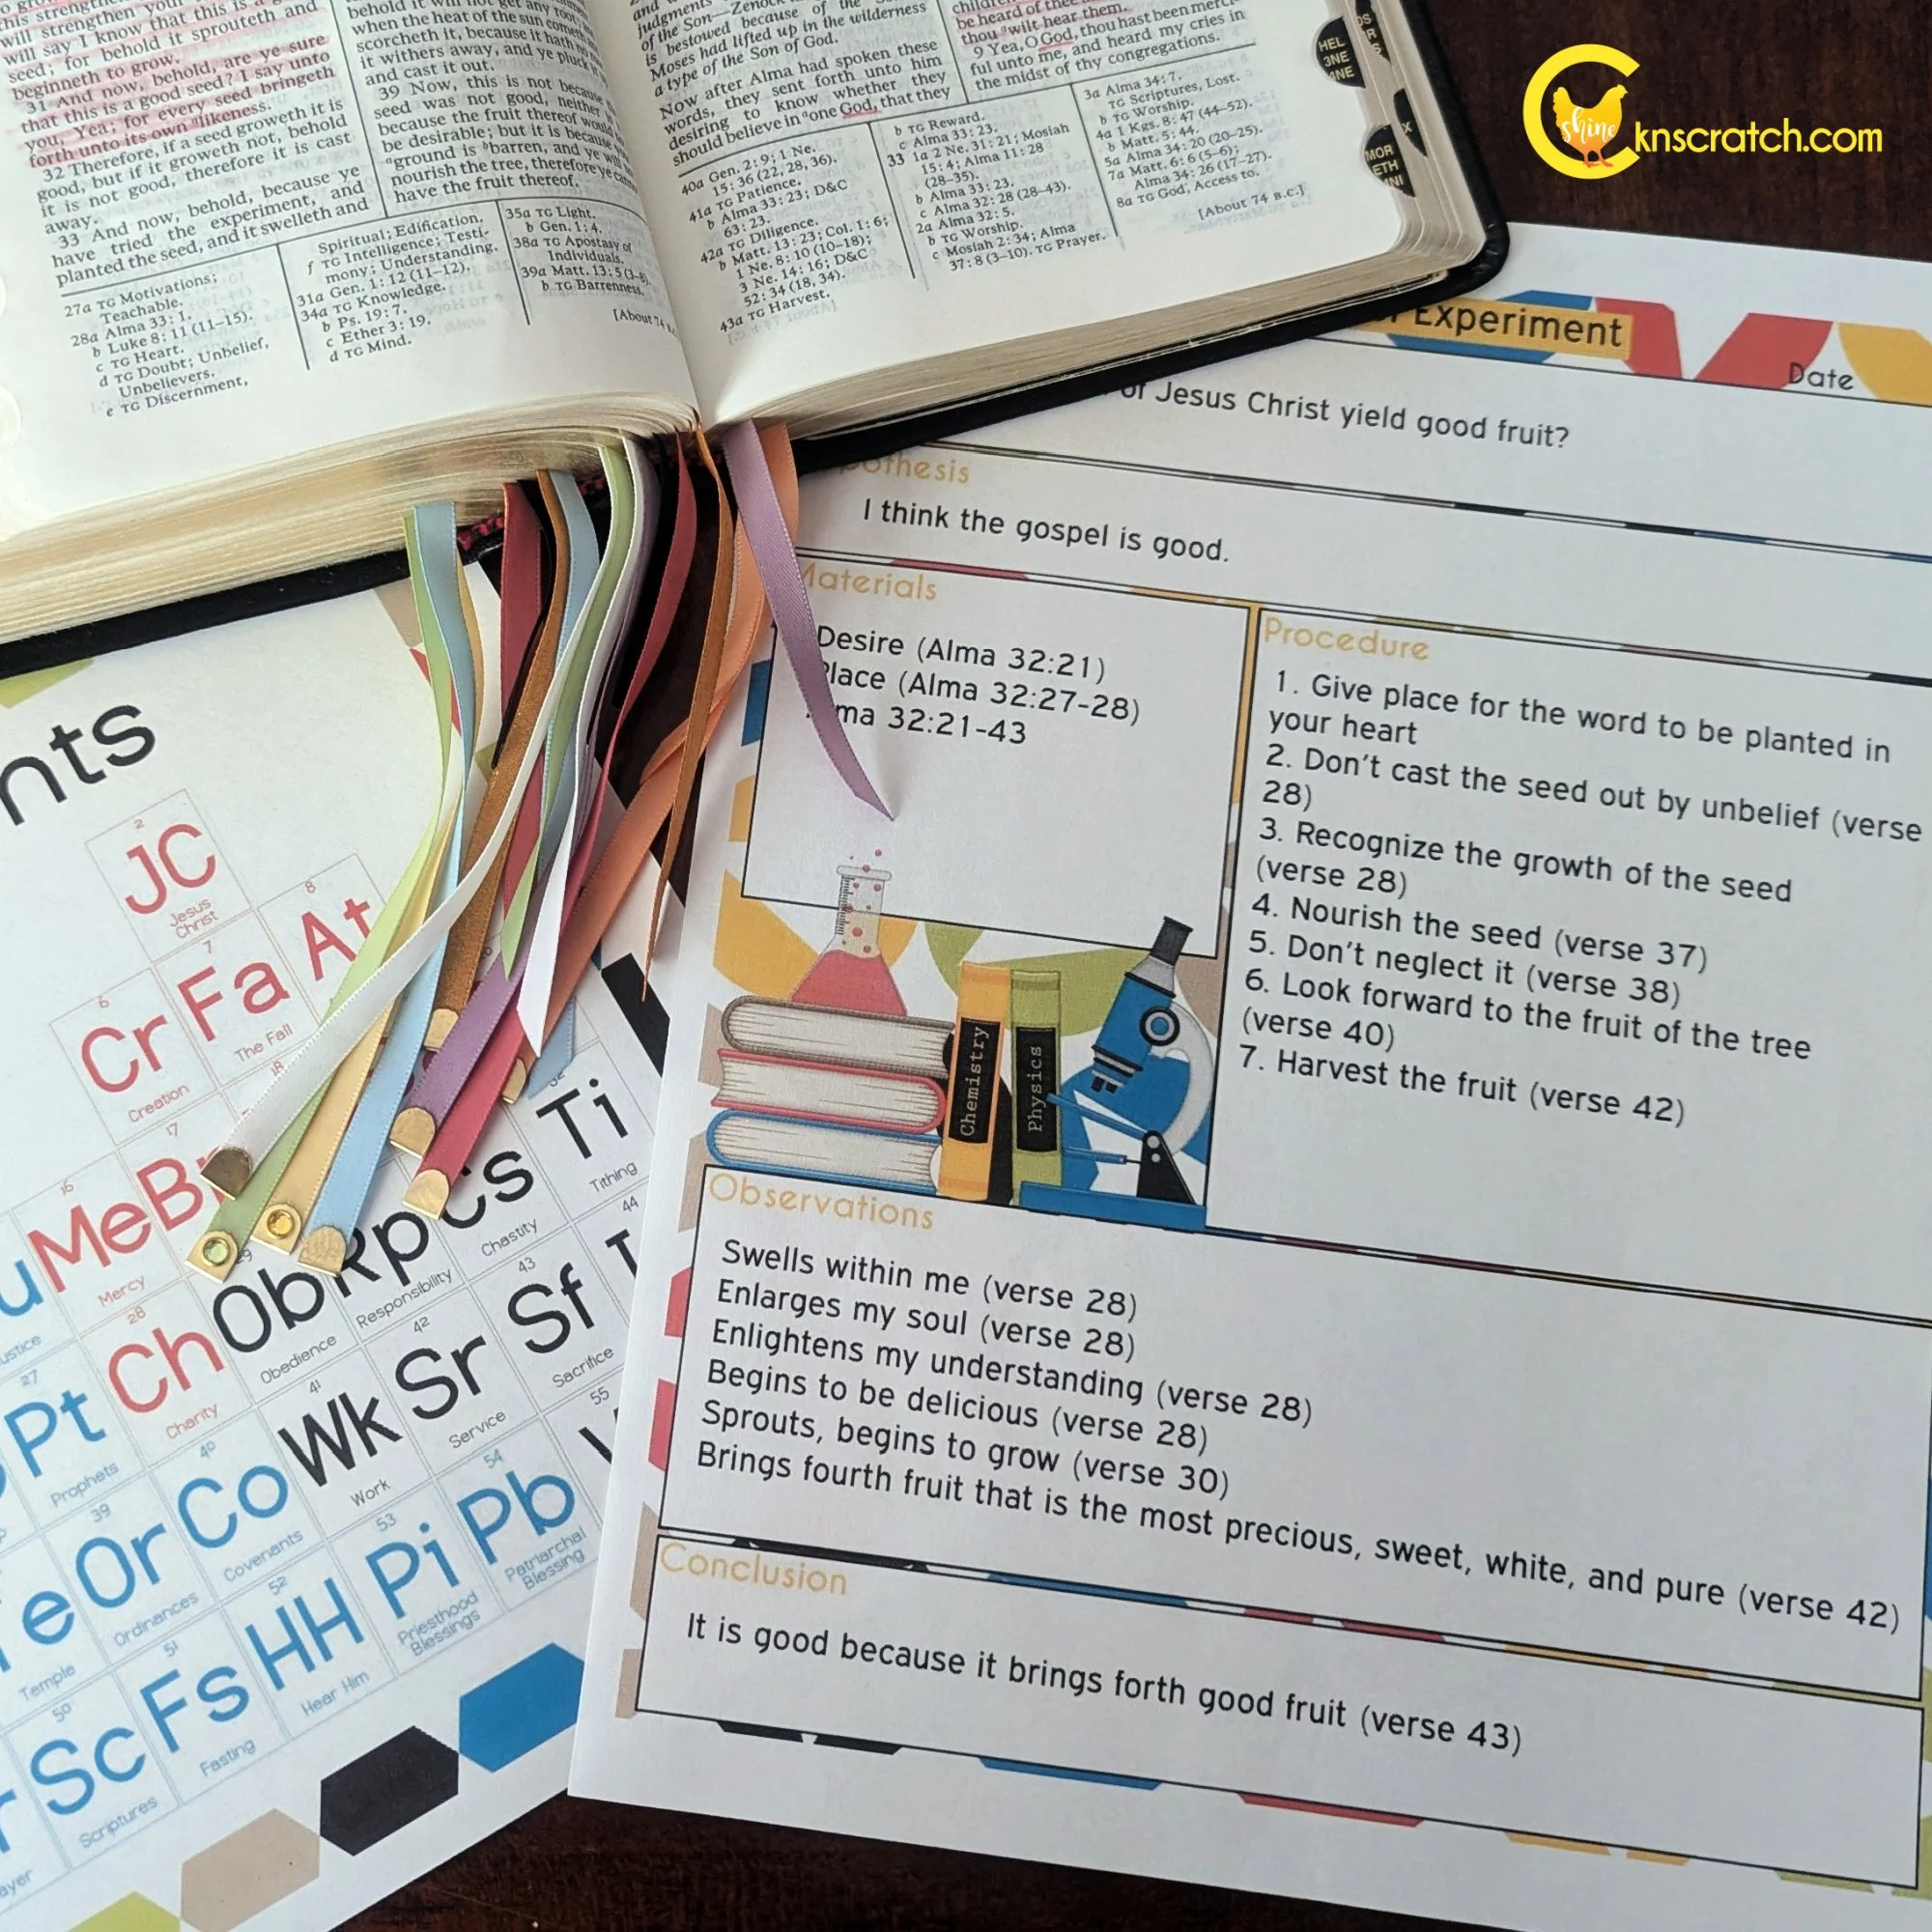 will strengthen your
will say I know that this is a
seed; for behold it sprouteth and
beginneth to grow.
31 And now, behold, are ye sure
that this is a good seed? I say unto
you, Yea; for every seed bringeth
forth unto its own likeness.
32 Therefore, if a seed groweth it is
good, but if it groweth not, behold
it is not good, therefore it is cast
away.
33 And now, behold, because ye
have tried the experiment, and
planted the seed, and it swelleth and
behold it will not get any root;
when the heat of the sun cometh and
scorcheth it, because it hath no
it withers away, and ye pluck it
and cast it out.
39 Now, this is not because
seed was not good, neither is
because the fruit thereof would
be desirable; but it is because
ground is barren, and ye will
nourish the tree, therefore ye cannot
have the fruit thereof.
27a TG Motivations;
Teachable.
28a Alma 33:1.
b Luke 8:11 (11–15).
c TG Heart.
d TG Doubt; Unbelief,
Unbelievers.
e TG Discernment,
Spiritual; Edification.
f TG Intelligence; Testi-
mony; Understanding.
31a Gen. 1:12 (11–12).
34a TG Knowledge.
b Ps. 19:7.
c Ether 3:19.
d TG Mind.
35a TG Light.
b Gen. 1:4.
38a TG Apostasy of
Individuals.
39a Matt. 13:5
b TG Barrenness.
[About 74
judgments
of the Son—Zenock
is bestowed because of the
Moses had lifted up in the wilderness
a type of the Son of God.
Now after Alma had spoken these
words, they sent forth unto him
desiring to know whether they
should believe in one God, that they
be heard of thee
thou wilt hear them.
9 Yea, O God, thou hast been merci-
ful unto me, and heard my cries in
the midst of thy congregations.
40a Gen. 2:9; 1 Ne.
15:36 (22, 28, 36).
41a TG Patience.
b Alma 33:23; D&C
63:23.
42a TG Diligence.
b Matt. 13:23; Col. 1:6;
1 Ne. 8:10 (10–18);
3 Ne. 14:16; D&C
52:34 (18, 34).
43a TG Harvest.
b TG Reward.
c Alma 33:23.
33 1a 2 Ne. 31:21; Mosiah
15:4; Alma 11:28
(28–35).
b Alma 33:23.
c Alma 32:28 (28–43).
2a Alma 32:5.
b TG Worship.
c Mosiah 2:34; Alma
37:8 (3–10). TG Prayer.
3a Alma 34:7.
TG Scriptures, Lost.
b TG Worship.
4a 1 Kgs. 8:47 (44–52).
b Matt. 5:44.
5a Alma 34:20 (20–25).
7a Matt. 6:6 (5–6);
Alma 34:26 (17–27).
8a TG God, Access to.
[About 74 B.C.]
HEL
3NE
4NE
MOR
ETH
shine
knscratch.com
Experiment
Date
of Jesus Christ yield good fruit?
othesis
I think the gospel is good.
Materials
Desire (Alma 32:21)
Place (Alma 32:27-28)
ma 32:21-43
Procedure
1. Give place for the word to be planted in
your heart
2. Don't cast the seed out by unbelief (verse
28)
3. Recognize the growth of the seed
(verse 28)
4. Nourish the seed (verse 37)
5. Don't neglect it (verse 38)
6. Look forward to the fruit of the tree
(verse 40)
7. Harvest the fruit (verse 42)
Chemistry
Physics
Observations
Swells within me (verse 28)
Enlarges my soul (verse 28)
Enlightens my understanding (verse 28)
Begins to be delicious (verse 28)
Sprouts, begins to grow (verse 30)
Brings fourth fruit that is the most precious, sweet, white, and pure (verse 42)
Conclusion
It is good because it brings forth good fruit (verse 43)
nts
2
JC
Jesus
Christ
6
Cr
Creation
7
Fa
The Fall
8
At
16
Me
Mercy
17
18
Ob
Obedience
Rp
Responsibility
Cs
Chastity
Ti
Tithing
27
Pt
Prophets
28
Ch
Charity
29
39
Or
Ordinances
40
Co
Covenants
41
Wk
Work
42
Sr
Service
43
Sf
Sacrifice
44
Temple
50
Sc
Scriptures
51
Fs
Fasting
52
HH
Hear Him
53
Pi
Priesthood
Blessings
54
Pb
Patriarchal
Blessing
55